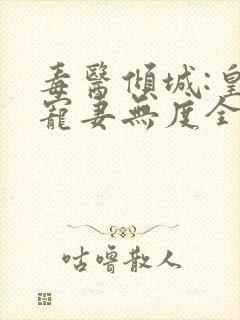 毒醫傾城:皇
寵妻無度全
咕嚕散人